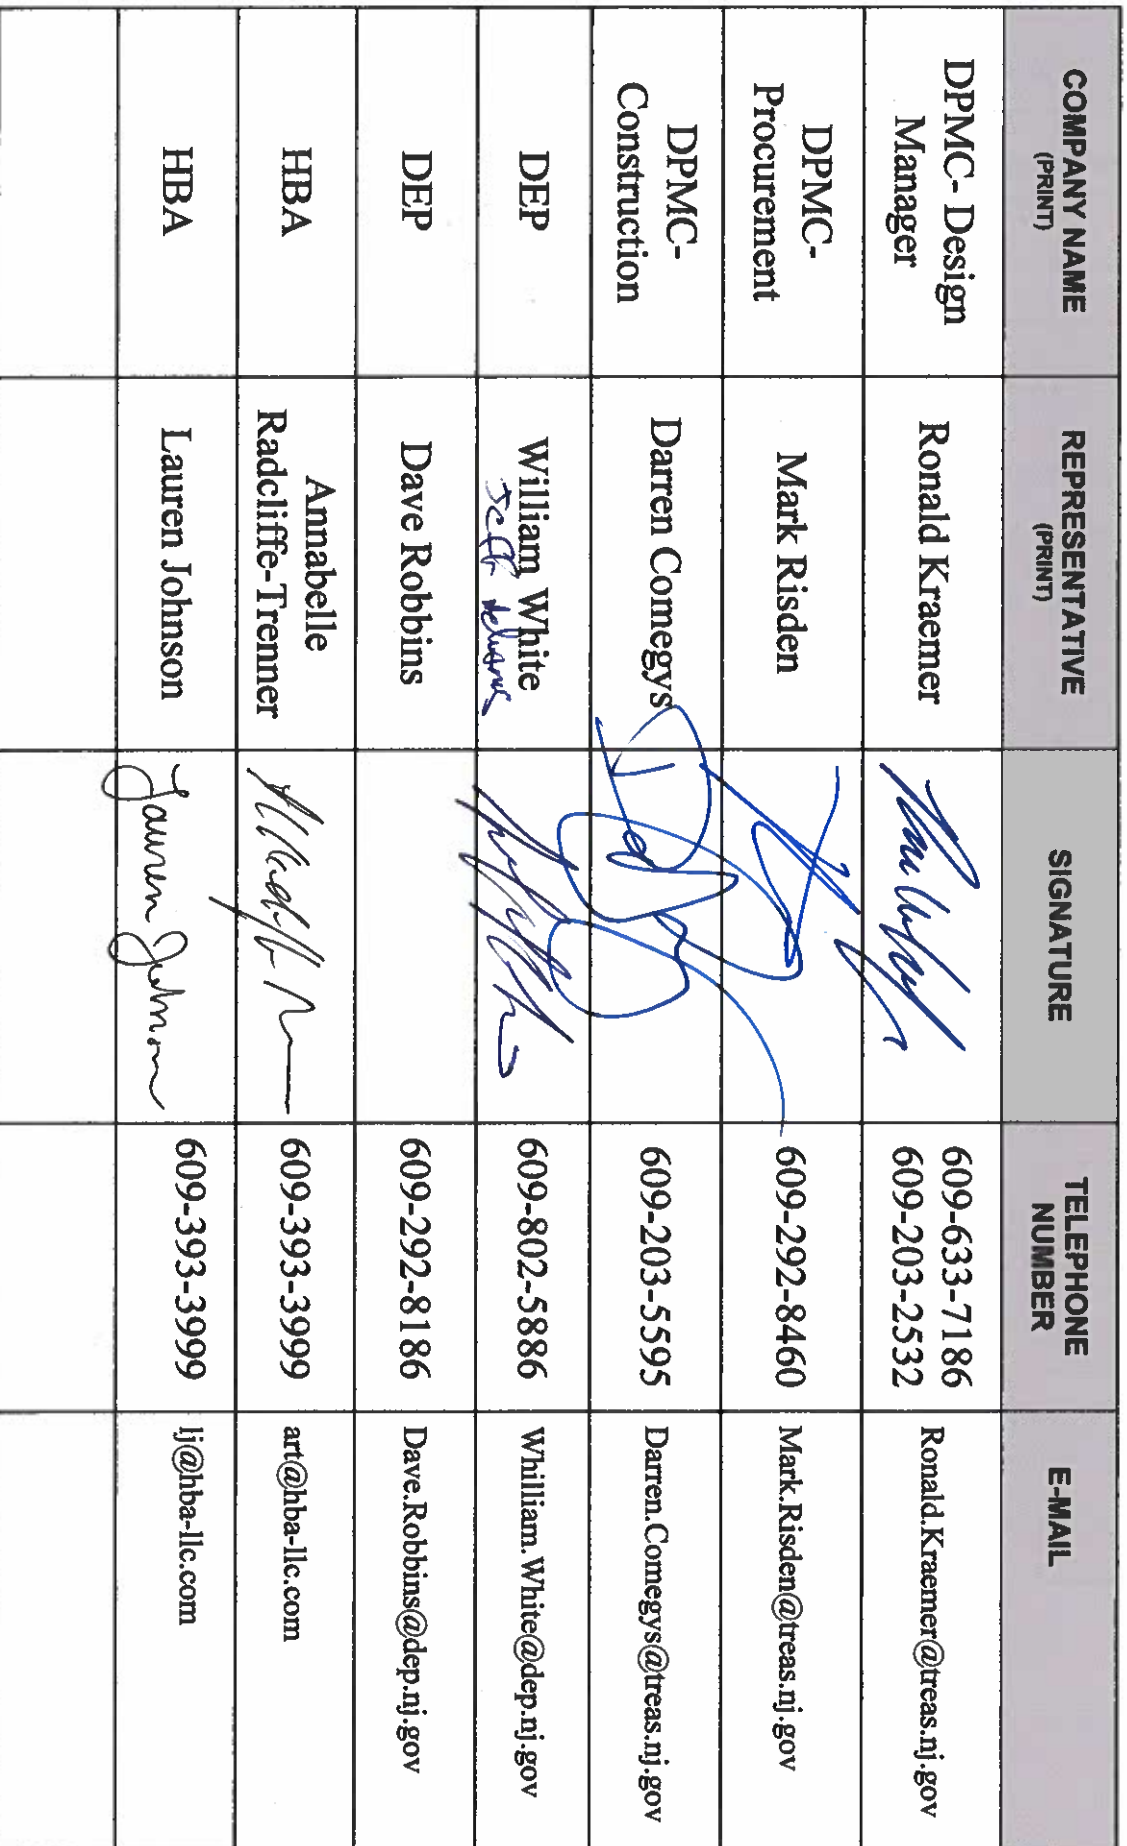 COMPANY NAME
(PRINT)
REPRESENTATIVE
(PRINT)
SIGNATURE
TELEPHONE
NUMBER
E-MAIL
DPMC- Design
Manager
Ronald Kraemer
609-633-7186
609-203-2532
Ronald.Kraemer@treas.nj.gov
DPMC-
Procurement
Mark Risden
609-292-8460
Mark.Risden@treas.nj.gov
DPMC-
Construction
Darren Comegys
609-203-5595
Darren.Comegys@treas.nj.gov
DEP
William White
Jeff
609-802-5886
Whilliam.White@dep.nj.gov
DEP
Dave Robbins
609-292-8186
Dave.Robbins@dep.nj.gov
HBA
Annabelle
Radcliffe-Trenner
609-393-3999
art@hba-llc.com
HBA
Lauren Johnson
Lauren Johnson
609-393-3999
lj@hba-llc.com